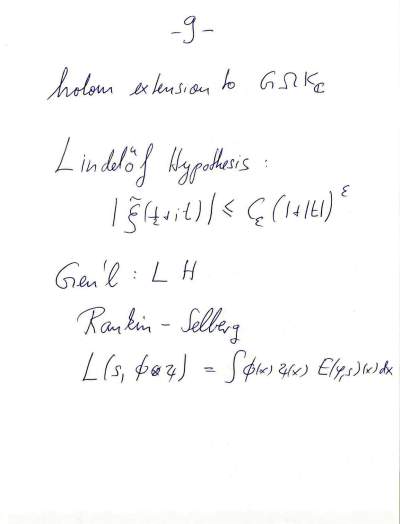 -9-
holom extension to GΩK_C
Lindelöf Hypothesis :
|ξ̃(½+it)| ≤ C_ε (1+|t|)^ε
Gen'l : L H
Rankin - Selberg
L(s, φ⊗ψ) = ∫φ(x) ψ(x) E(φ,s)(x) dx